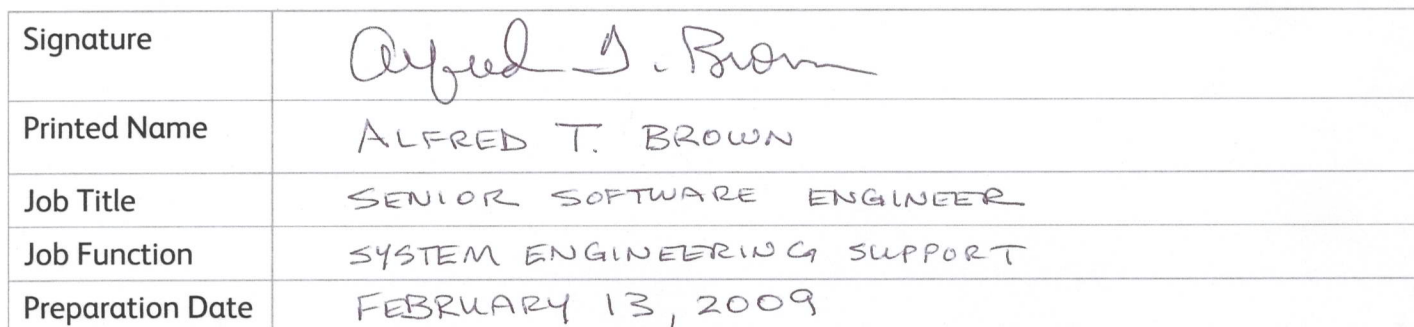 Signature Alfred T. Brown
Printed Name ALFRED T. BROWN
Job Title SENIOR SOFTWARE ENGINEER
Job Function SYSTEM ENGINEERING SUPPORT
Preparation Date FEBRUARY 13, 2009